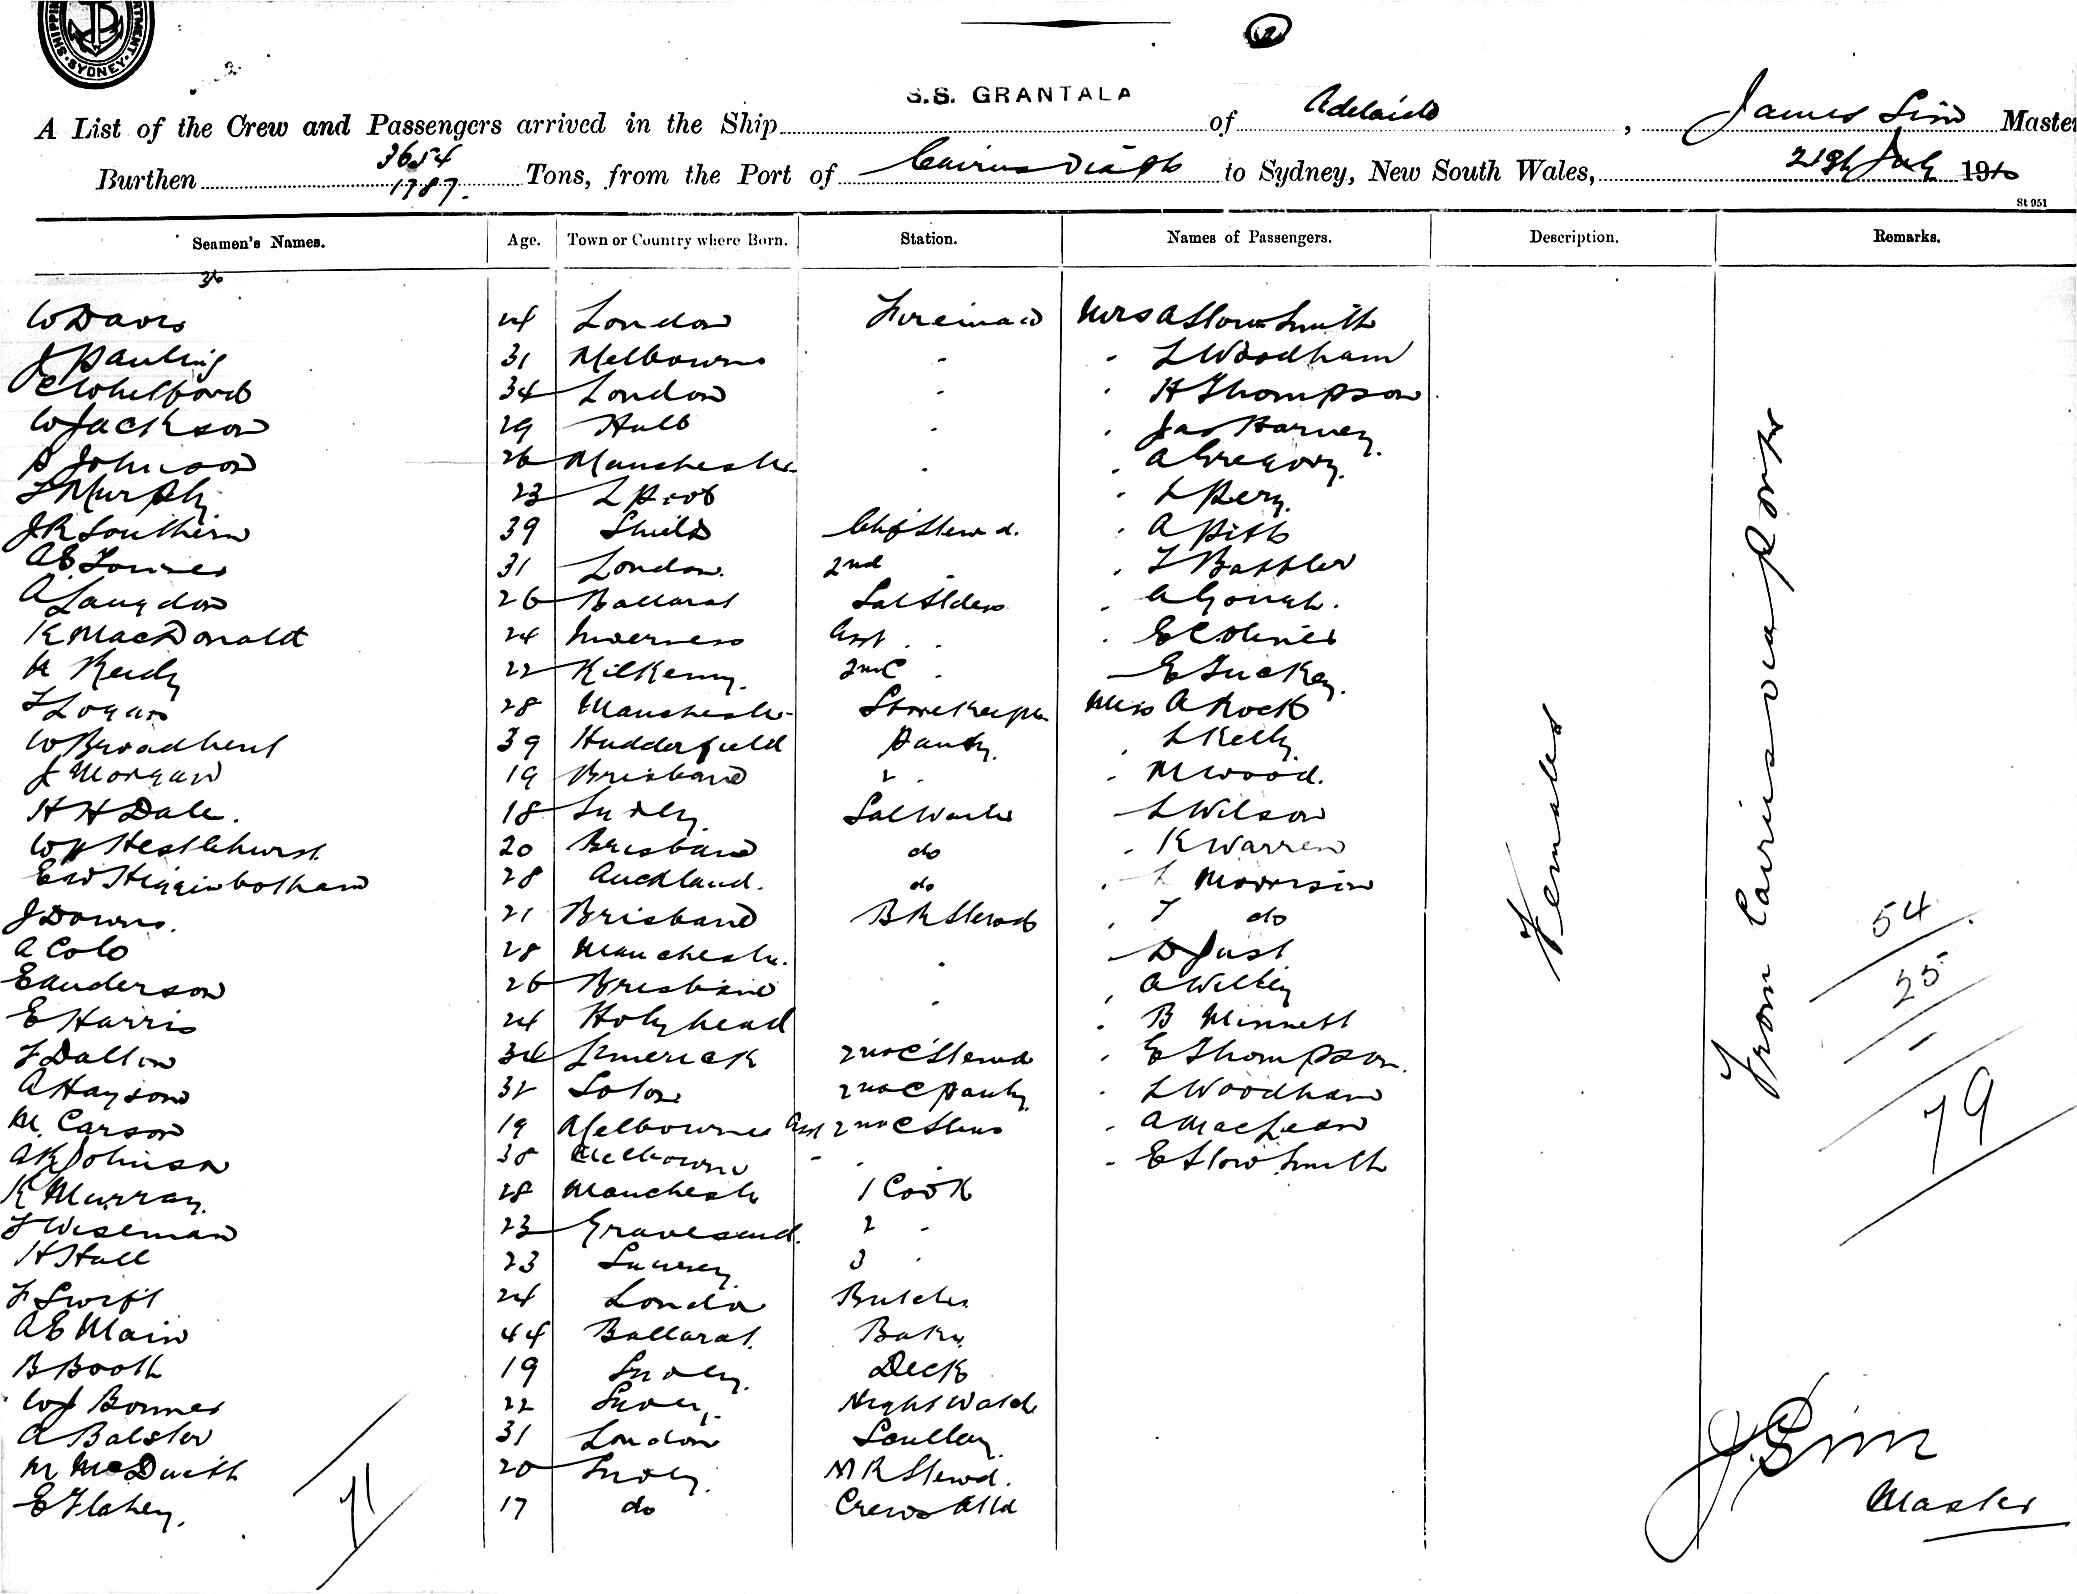 SHIPPING DEPARTMENT SYDNEY
2
S.S. GRANTALA
A List of the Crew and Passengers arrived in the Ship of Adelaide, James Sim Master
Burthen 3654 1787. Tons, from the Port of Cairns Via Pts to Sydney, New South Wales, 21st July 1910
St 951
Seamen's Names. Age. Town or Country where Born. Station. Names of Passengers. Description. Remarks.
36
W Davis 24 London Firemand Mrs A Slow Smith
J Pauling 31 Melbourne " " L Woodham
C Whelford 34 London " " H Thompson
W Jackson 29 Hull " " Jas Harvey
P Johnson 26 Manchester " " A Gregory
T Murphy 23 L Pool " L Pery
J R Southern 39 Shields Chf Stewd. " A Pitt
A E 31 London 2nd " "
A Langdon 26 Ballarat Sal Stders " A Gough.
K MacDonald 24 Inverness Asst " " " E C
K Reidy 22 Kilkenny 2nd C " " E Tuckey
T Logan 28 Manchester Storekeeper Miss A Rock
W Broadhent 39 Hudderfield Pantry " L Kelly
J Morgan 19 Brisbane 2 " " M Wood.
H H Dale. 18 Sydney Sal Waiter " L Wilson
W Hestlehurst 20 Brisbane do " K Warren
E W Higginbotham 28 Auckland. do " L Morrison
J Downs. 21 Brisbane B R Steward " T do
A Cole 28 Manchester. " " D Just
E Anderson 26 Brisbane " " A Willey
E Harris 24 Holyhead " B Minnett
T Dalton 34 Limerick 2nd C Steward " E Thompson
A Hayson 32 2nd C Pantry " L Woodham
M. Carson 19 Melbourne Asst 2nd C Stewd " A MacLean
A R Johnson 38 Melbourne " " " E Slow Smith
K Murray. 28 Manchester 1 Cook
T Wiseman 23 Gravesend. 2 "
H Hall 23 Surrey 3 "
F Swift 24 London Butcher
A E Main 44 Ballarat. Baker
B Booth 19 Sydney. Deck
W J Bonner 22 Sydney Night Watch
A Balster 31 London Scullery
M 20 Sydney. M R Stewd.
E Flahey. 17 do Crews Attd
71
Females
From Cairns via ports
54
25
1
79
J. Sim
Master